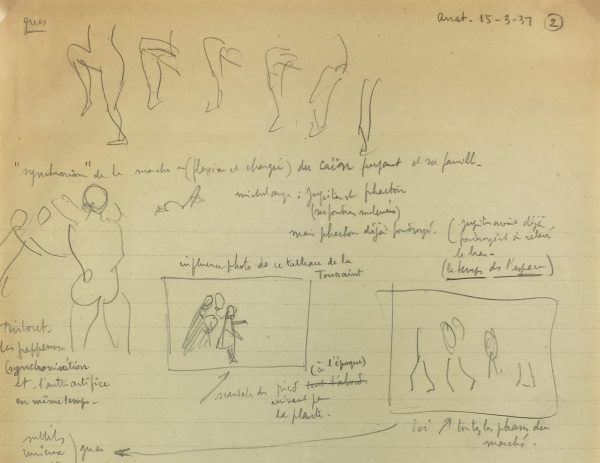 grecs
Anat. 15-3-37 2
"synchronism" de la marche (flexion et charge) du caïn fuyant et sa famill
michelange : Jupiter et phaeton
mais phaeton déjà foudroyé.
(Jupiter avait déjà
foudroyé et a relevé
le bras.
(le temps ds l'espace)
influence photo de ce tableau de la
Toussaint
Tintoret
les frappeurs
synchronisation
et l'autre artifice
en même temps.
(à l'époque)
scandale du pied tout d'abord
de plante.
ici toutes les phases du
marché.
subtils
grecs